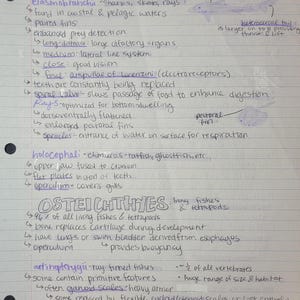 elasmobranchii - sharks, skates, rays
↳ many in coastal & pelagic waters
↳ paired fins
↳ enhanced prey detection
↳ long distance: large olfactory organs
↳ medium: lateral line system
↳ close: good vision
↳ final: ampullae of Lorenzini (electroreceptors)
↳ teeth are constantly being replaced
↳ spiral valve - slows passage of food to enhance digestion
Rays - optimized for bottom dwelling
↳ dorsoventrally flattened
↳ enlarged pectoral fins
↳ spiracles - entrance of water on surface for respiration
heterocercal tail
↳ larger on top providing thrust & lift
pectoral fin
holocephali - chimaeras, ratfish, ghostfish, etc.
↳ upper jaw fused to cranium
↳ flat plates instead of teeth
↳ operculum - covers gills
OSTEICHTHYES bony fishes & tetrapods
↳ 96% of all living fishes & tetrapods
↳ bone replaces cartilage during development
↳ have lungs or swim bladder derived from esophagus
↳ operculum ↳ provides buoyancy
actinopterygii - ray finned fishes
↳ some contain primitive features
↳ often ganoid scales - heavy armor
↳ some replaced by flexible
- ~½ of all vertebrates
- huge range of size & habitat